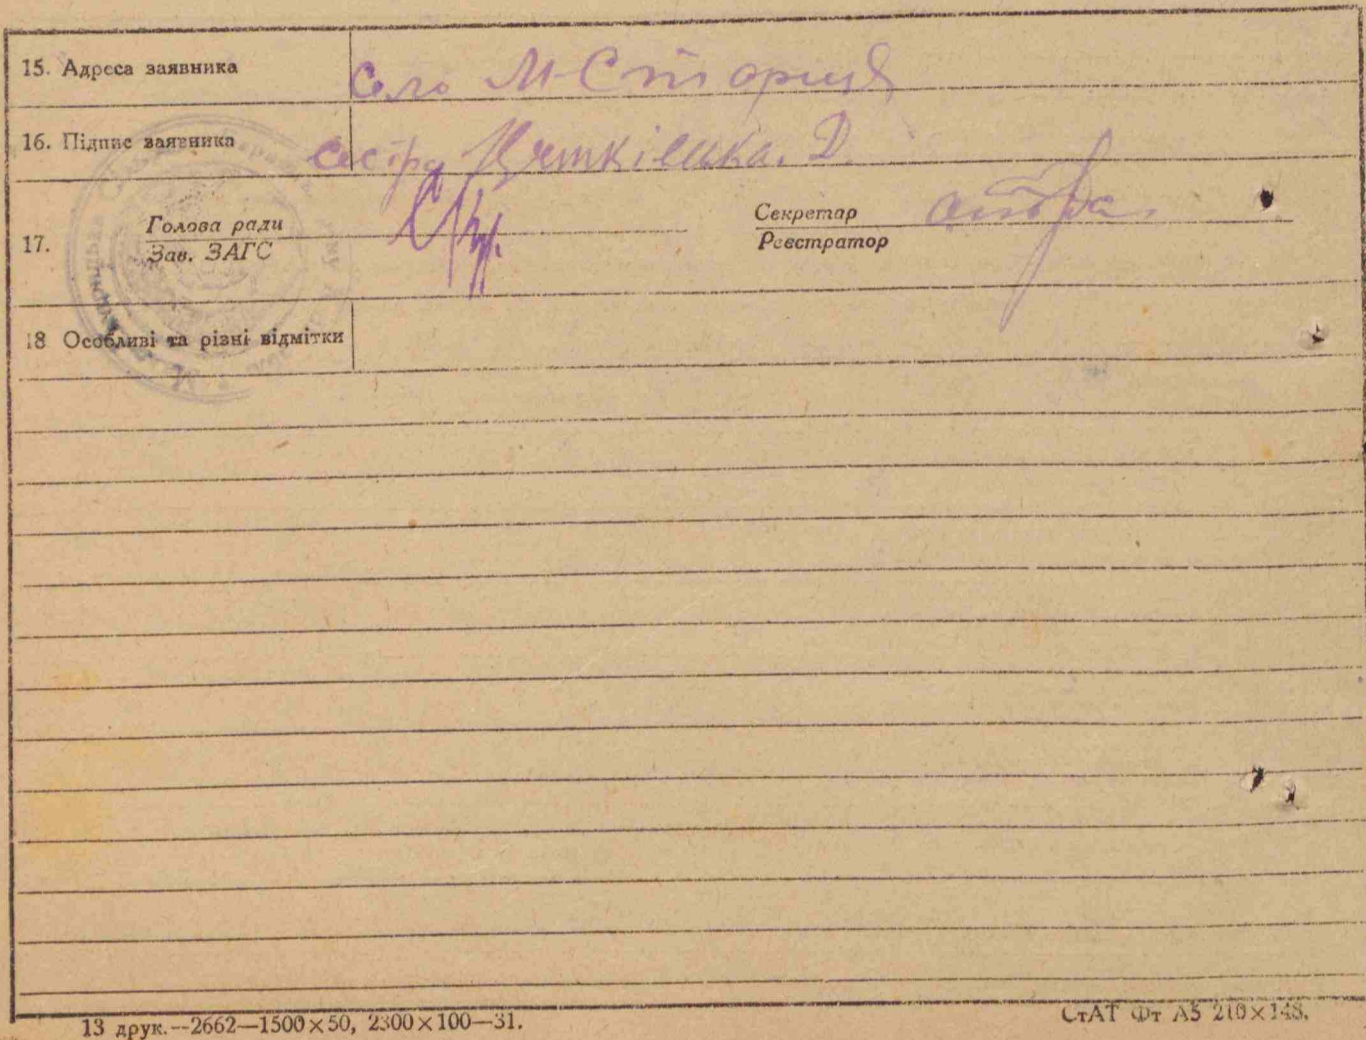 15. Адреса заявника Село М-Сториця
16. Підпис заявника сестра
17. Голова ради Секретар
Зав. ЗАГС Реєстратор
18 Особливі та різні відмітки
13 друк.--2662—1500×50, 2300×100—31. СтАТ Фт А5 210×148.